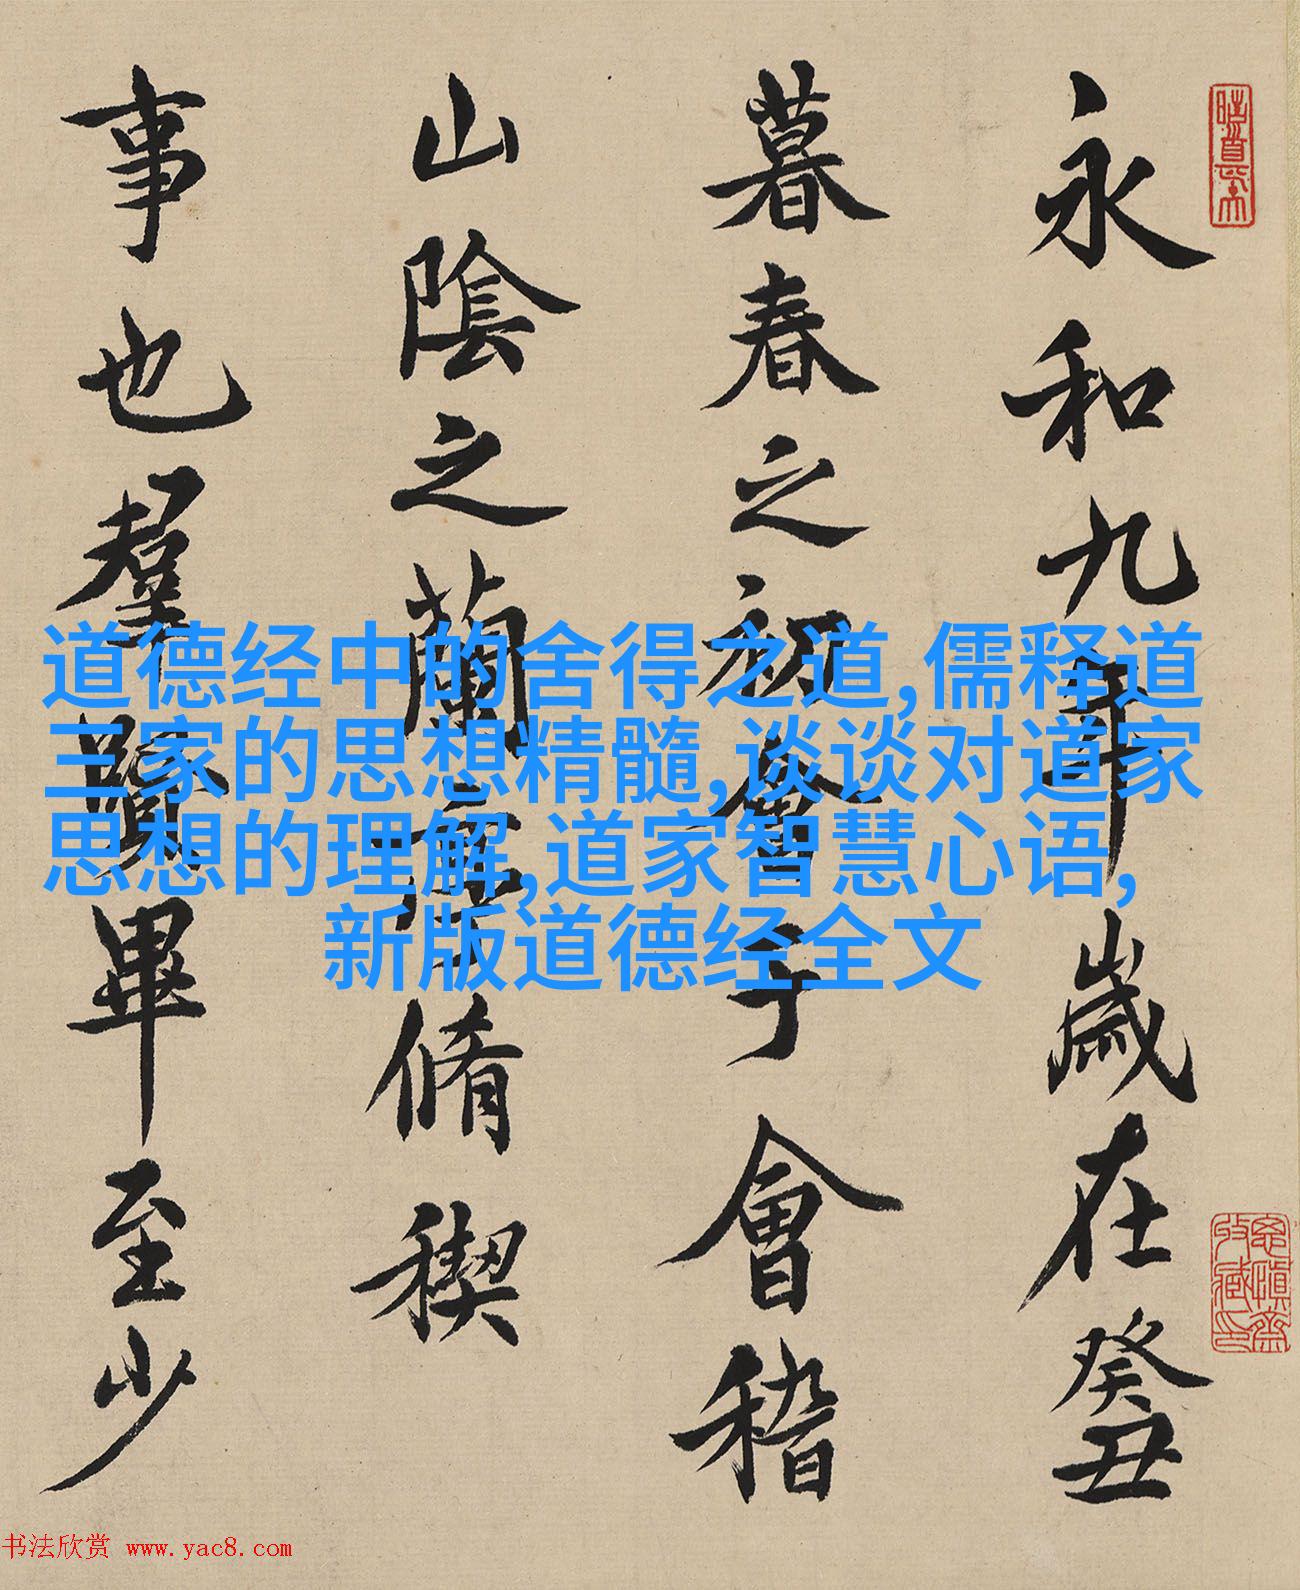 永和九年歲在癸丑
暮春之初會于會稽
山陰之蘭亭脩稧
事也羣賢畢至少
道德经中的舍得之道,儒释道
三家的思想精髓,谈谈对道家
思想的理解,道家智慧心语,
新版道德经全文
书法欣赏 www.yac8.com